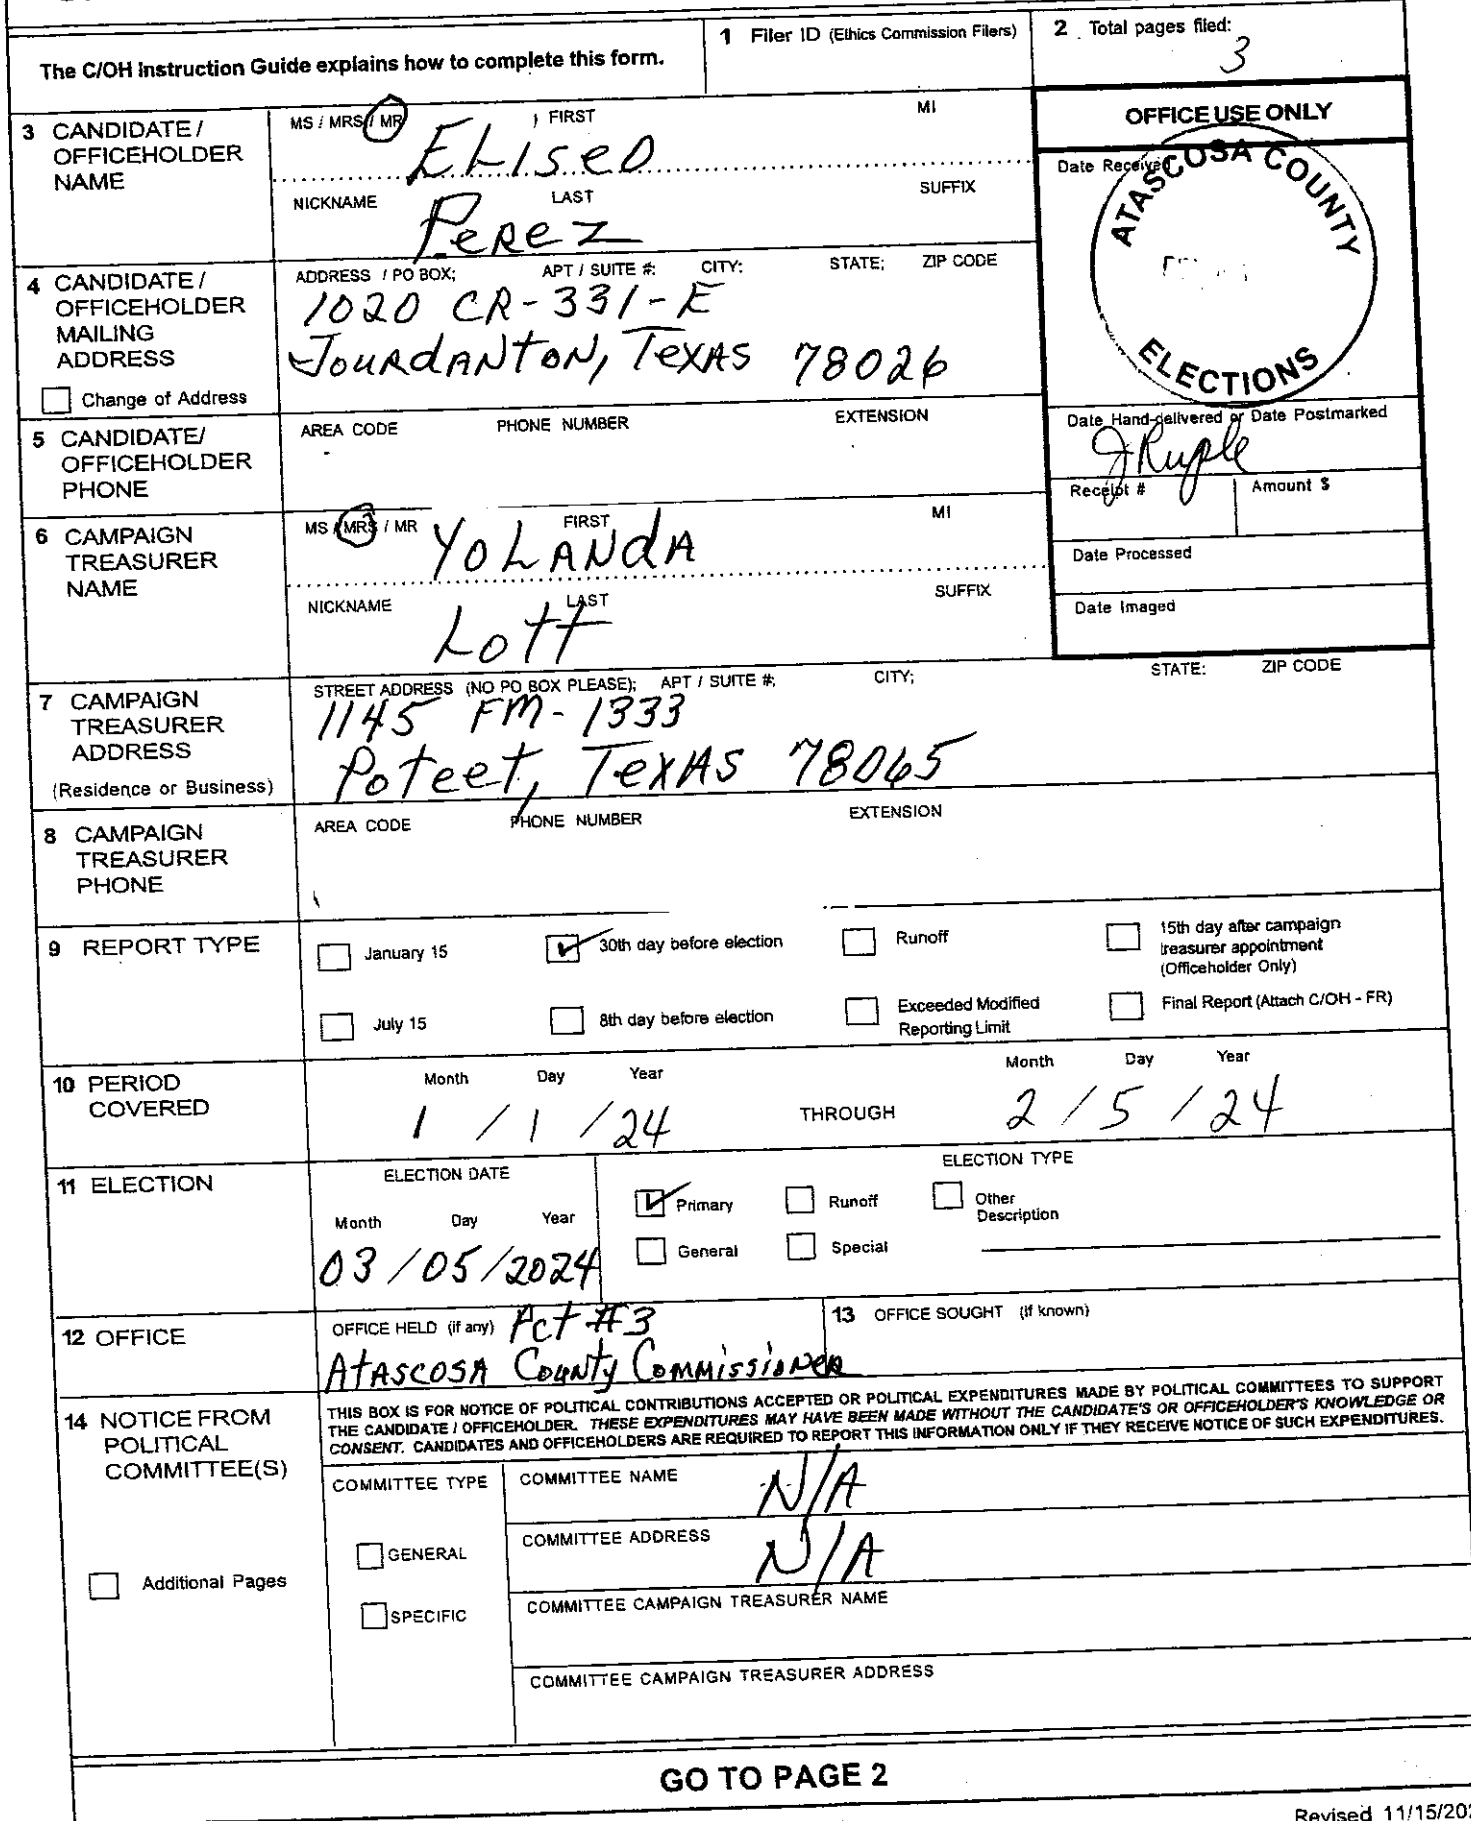 The C/OH Instruction Guide explains how to complete this form.
1 Filer ID (Ethics Commission Filers)
2 Total pages filed:
3
3 CANDIDATE /
OFFICEHOLDER
NAME
MS / MRS / MR
FIRST
MI
ELiseo
NICKNAME
LAST
SUFFIX
Perez
OFFICE USE ONLY
Date Received
ATASCOSA COUNTY
ELECTIONS
4 CANDIDATE /
OFFICEHOLDER
MAILING
ADDRESS
Change of Address
ADDRESS / PO BOX;
APT / SUITE #;
CITY;
STATE;
ZIP CODE
1020 CR-331-E
Jourdanton, Texas 78026
Date Hand-delivered or Date Postmarked
JRuple
5 CANDIDATE/
OFFICEHOLDER
PHONE
AREA CODE
PHONE NUMBER
EXTENSION
Receipt #
Amount $
6 CAMPAIGN
TREASURER
NAME
MS / MRS / MR
FIRST
MI
YOLANdA
NICKNAME
LAST
SUFFIX
Lott
Date Processed
Date Imaged
7 CAMPAIGN
TREASURER
ADDRESS
(Residence or Business)
STREET ADDRESS (NO PO BOX PLEASE);
APT / SUITE #;
CITY;
STATE;
ZIP CODE
1145 FM-1333
Poteet, Texas 78065
8 CAMPAIGN
TREASURER
PHONE
AREA CODE
PHONE NUMBER
EXTENSION
9 REPORT TYPE
January 15
30th day before election
Runoff
15th day after campaign
treasurer appointment
(Officeholder Only)
July 15
8th day before election
Exceeded Modified
Reporting Limit
Final Report (Attach C/OH - FR)
10 PERIOD
COVERED
Month Day Year
1 / 1 / 24
THROUGH
Month Day Year
2 / 5 / 24
11 ELECTION
ELECTION DATE
Month Day Year
03 / 05 / 2024
ELECTION TYPE
Primary
Runoff
Other
Description
General
Special
12 OFFICE
OFFICE HELD (if any)
Pct #3
Atascosa County Commissioner
13 OFFICE SOUGHT (if known)
14 NOTICE FROM
POLITICAL
COMMITTEE(S)
Additional Pages
THIS BOX IS FOR NOTICE OF POLITICAL CONTRIBUTIONS ACCEPTED OR POLITICAL EXPENDITURES MADE BY POLITICAL COMMITTEES TO SUPPORT
THE CANDIDATE / OFFICEHOLDER. THESE EXPENDITURES MAY HAVE BEEN MADE WITHOUT THE CANDIDATE'S OR OFFICEHOLDER'S KNOWLEDGE OR
CONSENT. CANDIDATES AND OFFICEHOLDERS ARE REQUIRED TO REPORT THIS INFORMATION ONLY IF THEY RECEIVE NOTICE OF SUCH EXPENDITURES.
COMMITTEE TYPE
GENERAL
SPECIFIC
COMMITTEE NAME
N/A
COMMITTEE ADDRESS
N/A
COMMITTEE CAMPAIGN TREASURER NAME
COMMITTEE CAMPAIGN TREASURER ADDRESS
GO TO PAGE 2
Revised 11/15/202